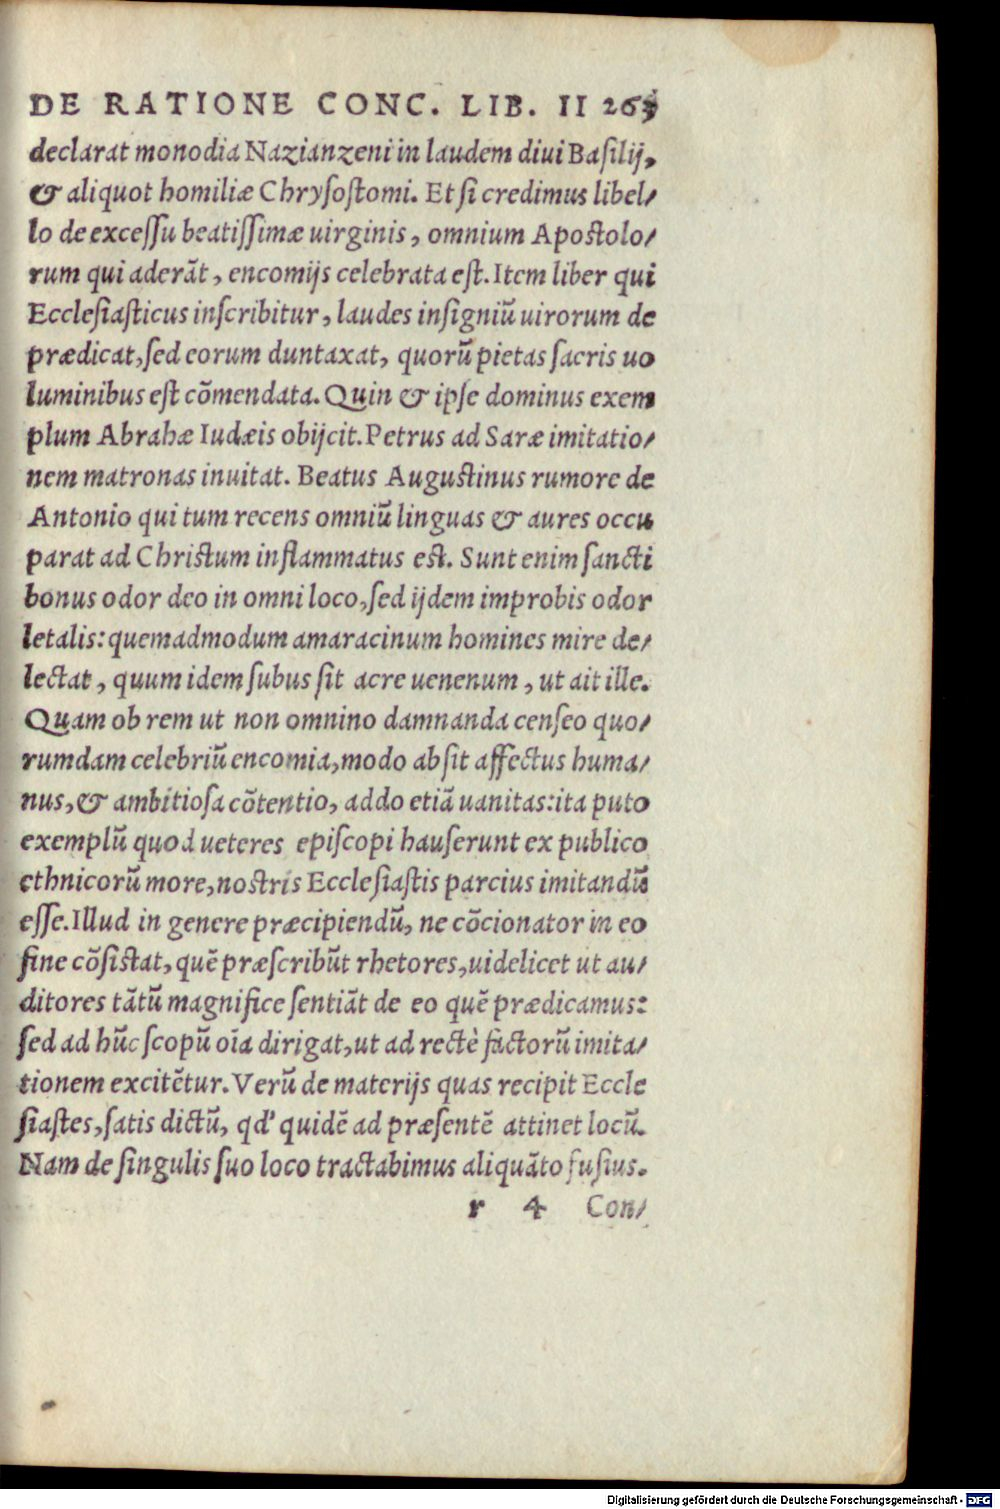 DE RATIONE CONC. LIB. II 263
declarat monodia Nazianzeni in laudem diui Basilij,
& aliquot homiliæ Chrysostomi. Et si credimus libel/
lo de excessu beatissimæ uirginis, omnium Apostolo/
rum qui aderāt, encomijs celebrata est. Item liber qui
Ecclesiasticus inscribitur, laudes insigniū uirorum de
prædicat, sed eorum duntaxat, quorū pietas sacris uo
luminibus est cōmendata. Quin & ipse dominus exem
plum Abrahæ Iudæis obijcit. Petrus ad Saræ imitatio/
nem matronas inuitat. Beatus Augustinus rumore de
Antonio qui tum recens omniū linguas & aures occu
parat ad Christum inflammatus est. Sunt enim sancti
bonus odor deo in omni loco, sed ijdem improbis odor
letalis: quemadmodum amaracinum homines mire de/
lectat, quum idem subus sit acre uenenum, ut ait ille.
Quam ob rem ut non omnino damnanda censeo quo/
rumdam celebriū encomia, modo absit affectus huma/
nus, & ambitiosa cōtentio, addo etiā uanitas: ita puto
exemplū quod ueteres episcopi hauserunt ex publico
ethnicorū more, nostris Ecclesiastis parcius imitandū
esse. Illud in genere præcipiendū, ne cōcionator in eo
fine cōsistat, quē præscribūt rhetores, uidelicet ut au/
ditores tātū magnifice sentiāt de eo quē prædicamus:
sed ad hūc scopū oīa dirigat, ut ad rectè factorū imita/
tionem excitētur. Verū de materijs quas recipit Eccle
siastes, satis dictū, qd' quidē ad præsentē attinet locū.
Nam de singulis suo loco tractabimus aliquāto fusius.
r 4 Con/
Digitalisierung gefördert durch die Deutsche Forschungsgemeinschaft - DFG